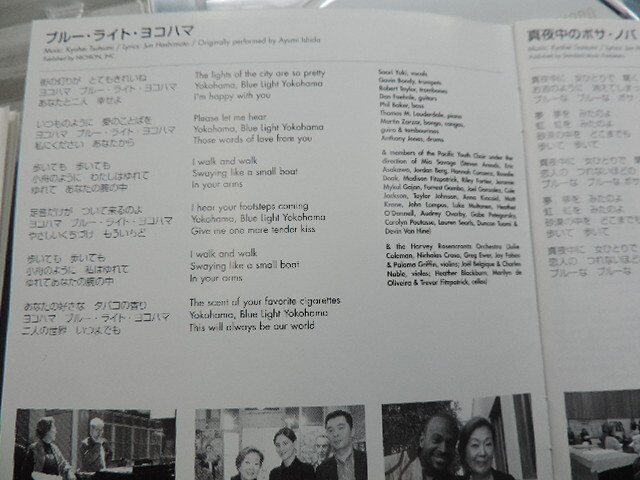 ブルー・ライト・ヨコハマ
Music: Kyohei Tsutsumi / Lyrics: Jun Hashimoto / Originally performed by Ayumi Ishida
Published by NICHION, INC
街の灯りが とてもきれいね
ヨコハマ ブルー・ライト・ヨコハマ
あなたと二人 幸せよ
いつものように 愛のことばを
ヨコハマ ブルー・ライト・ヨコハマ
私にください あなたから
歩いても 歩いても
小舟のように わたしはゆれて
ゆれて あなたの腕の中
足音だけが ついて来るのよ
ヨコハマ ブルー・ライト・ヨコハマ
やさしいくちづけ もういちど
歩いても 歩いても
小舟のように 私はゆれて
ゆれてあなたの腕の中
あなたの好きな タバコの香り
ヨコハマ ブルー・ライト・ヨコハマ
二人の世界 いつまでも
The lights of the city are so pretty
Yokohama, Blue Light Yokohama
I'm happy with you
Please let me hear
Yokohama, Blue Light Yokohama
Those words of love from you
I walk and walk
Swaying like a small boat
In your arms
I hear your footsteps coming
Yokohama, Blue Light Yokohama
Give me one more tender kiss
I walk and walk
Swaying like a small boat
In your arms
The scent of your favorite cigarettes
Yokohama, Blue Light Yokohama
This will always be our world
Saori Yuki, vocals
Gavin Bondy, trumpets
Robert Taylor, trombones
Dan Faehnle, guitars
Phil Baker, bass
Thomas M. Lauderdale, piano
Martin Zarzar, bongo, congas,
guiro & tambourines
Anthony Jones, drums
& members of the Pacific Youth Choir under the
direction of Mia Savage
& the Harvey Rosencrantz Orchestra (Julie
Coleman, Nicholas Crosa, Greg Ewer, Joy Fabos
& Paloma Griffin, violins; Joël Belgique & Charles
Noble, violas; Heather Blackburn, Marilyn de
Oliveira & Trevor Fitzpatrick, cellos)
真夜中のボサ・ノバ
Music: Kyohei Tsutsumi / Lyrics: Jun
真夜中に 女ひとりで
夢 夢を みたのよ
虹 虹を みたのよ
砂漠の中を どこまでも
歩いて 歩いて
真夜中に 女ひとりで
恋人の つれないほどの
ブルーな ブルーな
夢 夢を みたのよ
虹 虹を みたのよ
砂漠の中を どこまでも
歩いて 歩いて
真夜中に 女ひとりで
恋人の つれないほどの
ブルーな ブルーな